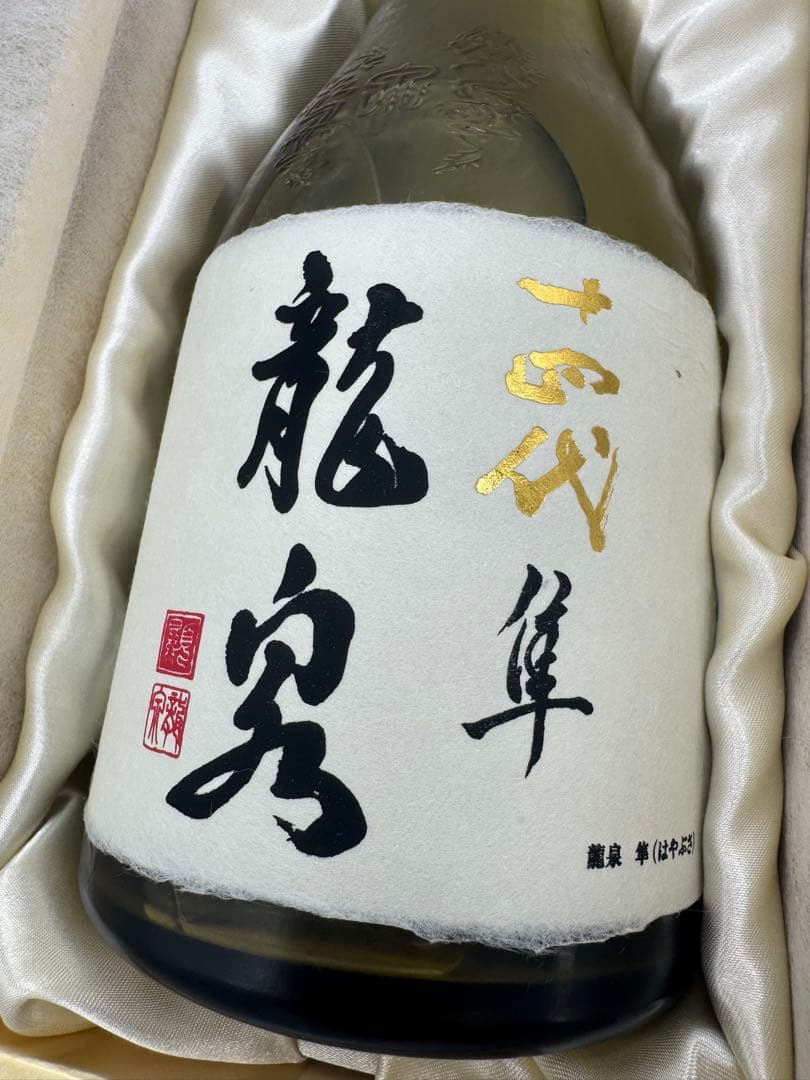 十四代
隼
龍泉
龍泉 隼(はやぶさ)